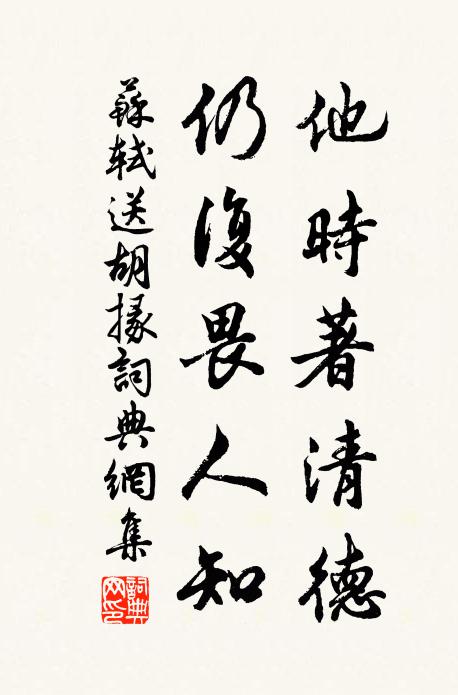 他時著清德
仍復畏人知
蘇軾送胡掾詞典網集
詞典網印